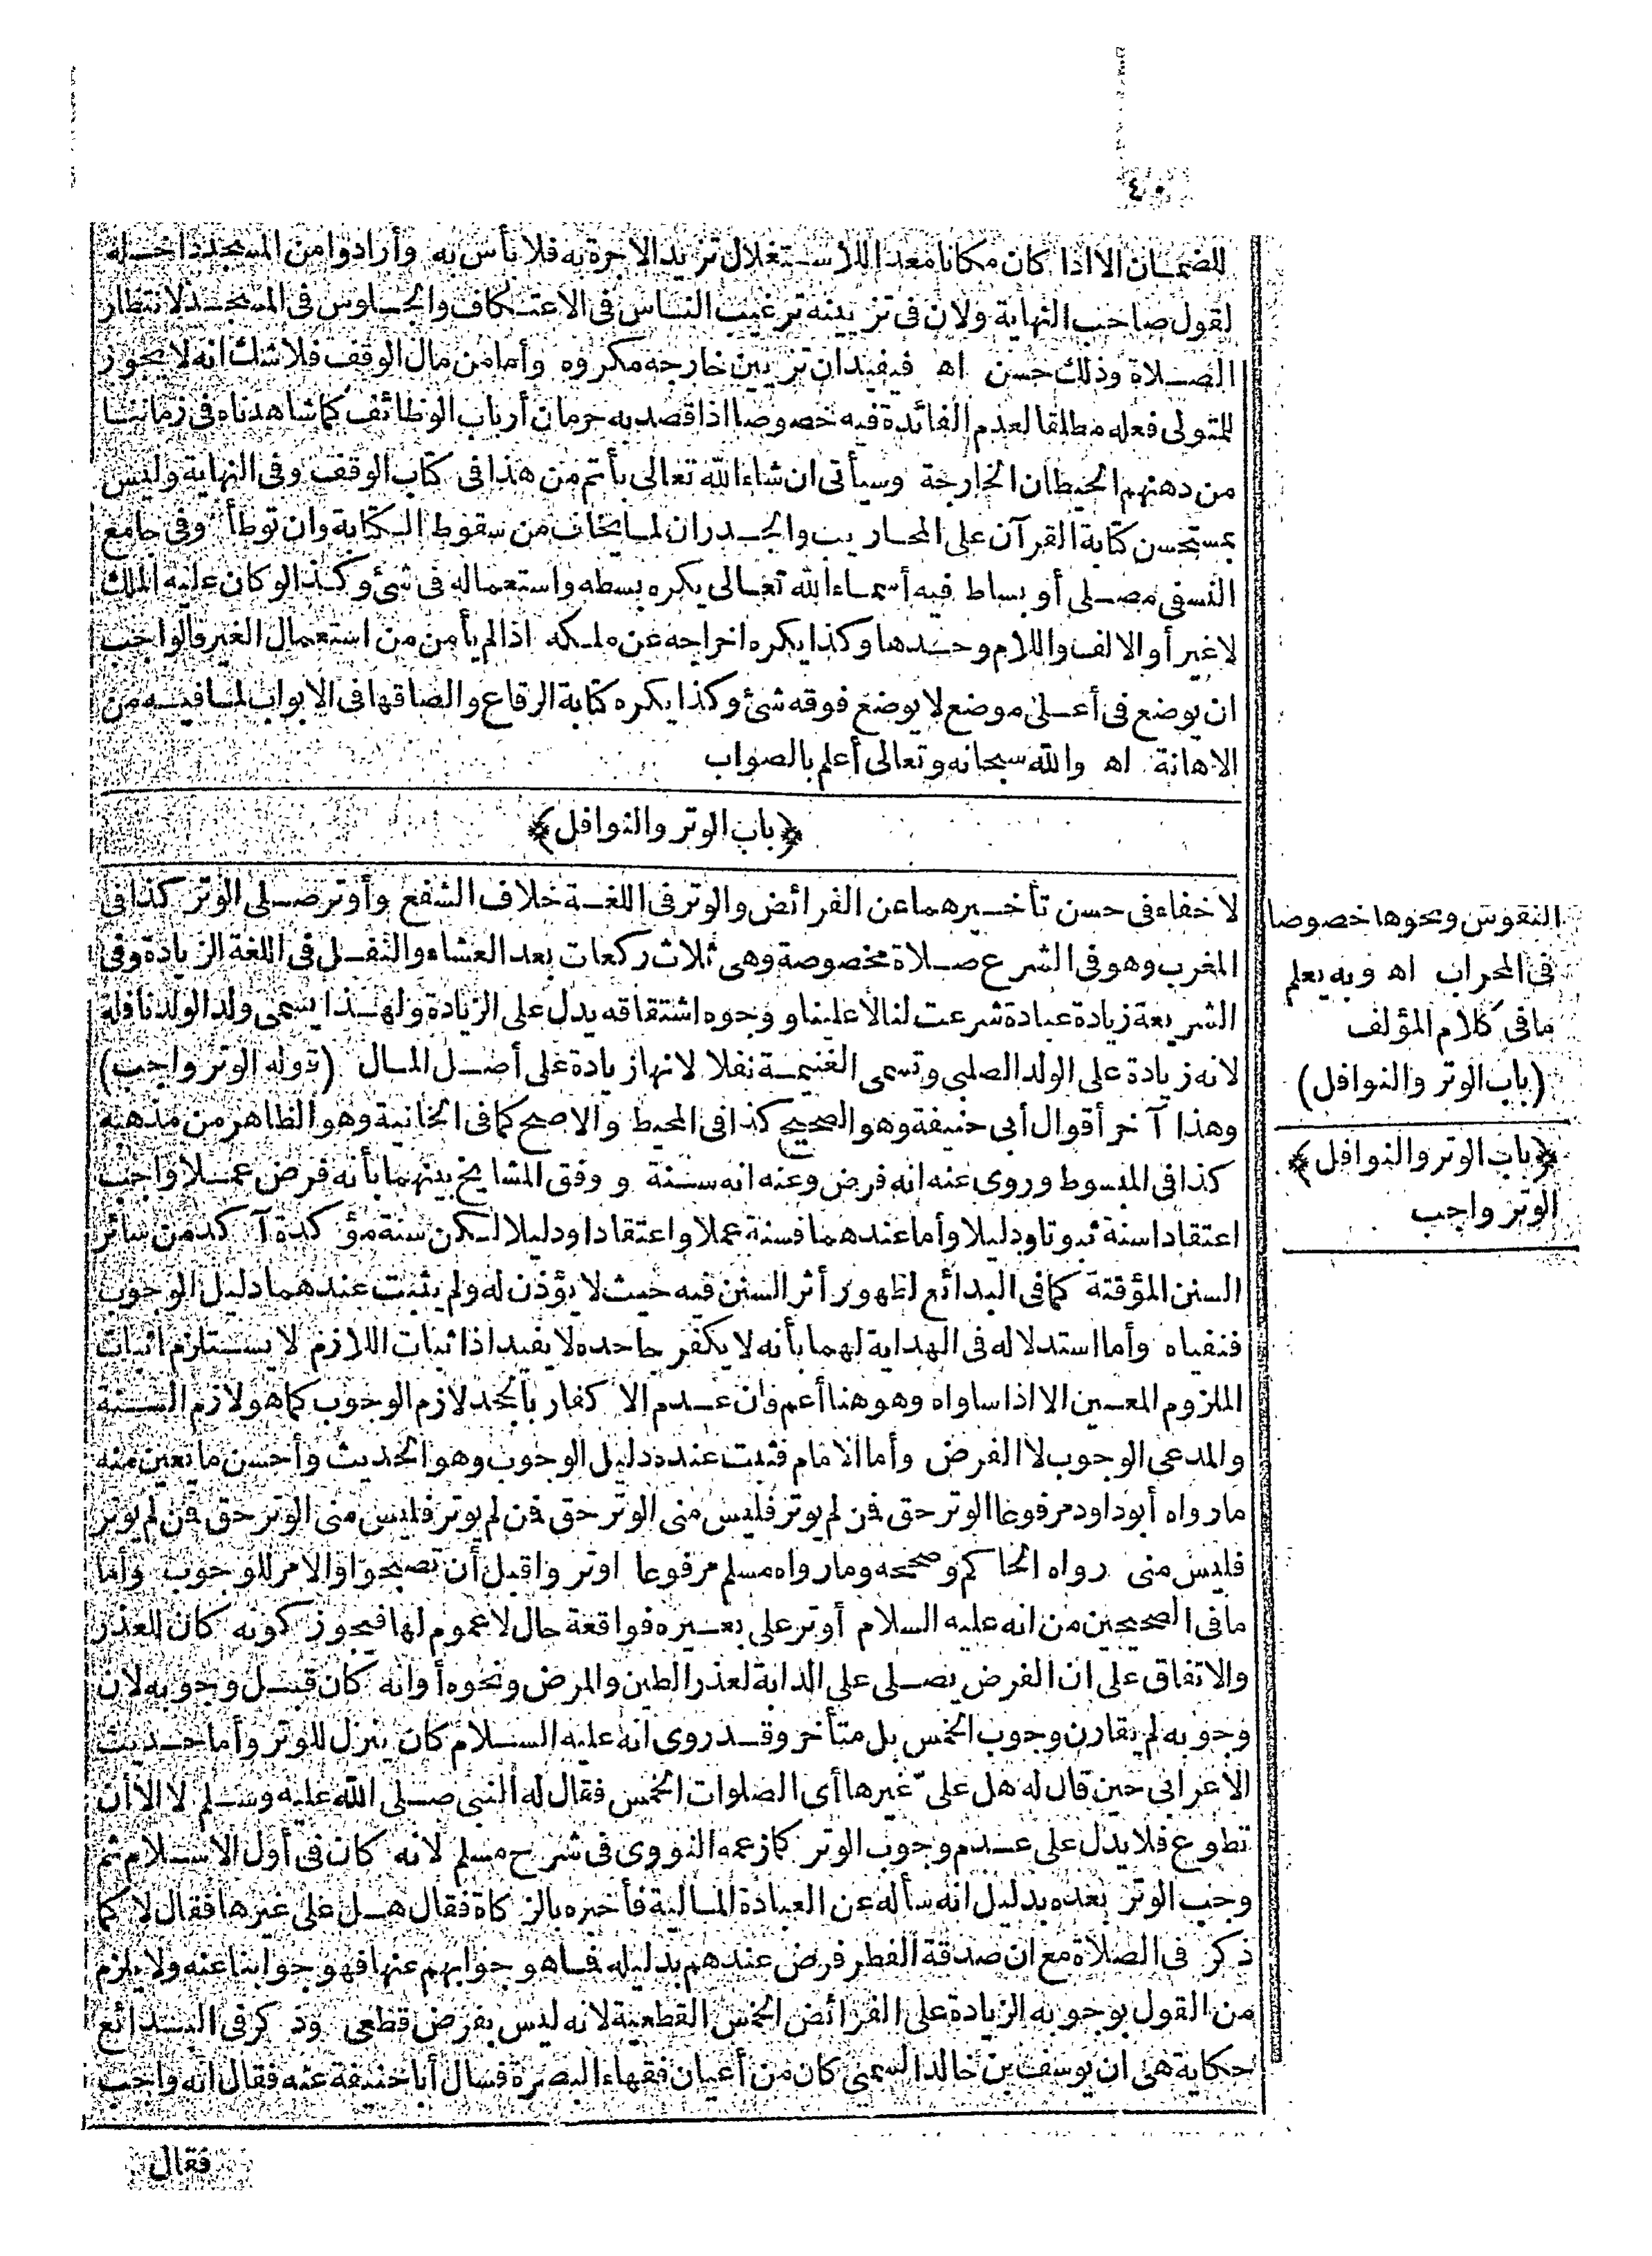 ٤٠
للضمان الا اذا كان مكانا معدا للاستغلال تزيد الاجرة به فلا بأس به وأرادوا من المسجد داخله
لقول صاحب النهاية ولان فى تزيينه ترغيب الناس فى الاعتكاف والجلوس فى المسجد لانتظار
الصلاة وذلك حسن اه فيفيد ان تزيين خارجه مكروه وأما من مال الوقف فلا شك انه لا يجوز
للمتولى فعله مطلقا لعدم الفائدة فيه خصوصا اذا قصد به حرمان أرباب الوظائف كما شاهدناه فى زماننا
من دهنهم الحيطان الخارجة وسيأتى ان شاء الله تعالى بأتم من هذا فى كتاب الوقف وفى النهاية وليس
بمستحسن كتابة القرآن على المحاريب والجدران لما يخاف من سقوط الكتابة وان توطأ وفى جامع
النسفى مصلى أو بساط فيه أسماء الله تعالى يكره بسطه واستعماله فى شئ وكذا لو كان عليه الملك
لا غير أو الالف واللام وحدها وكذا يكره اخراجه عن ملكه اذا لم يأمن من استعمال الغير فالواجب
ان يوضع فى أعلى موضع لا يوضع فوقه شئ وكذا يكره كتابة الرقاع والصاقها فى الابواب لما فيه من
الاهانة اه والله سبحانه وتعالى أعلم بالصواب
﴿باب الوتر والنوافل﴾
لا خفاء فى حسن تأخيرهما عن الفرائض والوتر فى اللغة خلاف الشفع وأوتر صلى الوتر كذا فى
المغرب وهو فى الشرع صلاة مخصوصة وهى ثلاث ركعات بعد العشاء والنفل فى اللغة الزيادة وفى
الشريعة زيادة عبادة شرعت لنا لا علينا ووجوه اشتقاقه يدل على الزيادة ولهذا يسمى ولد الولد نافلة
لانه زيادة على الولد الصلبى وتسمى الغنيمة نفلا لانها زيادة على أصل المال (قوله الوتر واجب)
وهذا آخر أقوال أبى حنيفة وهو الصحيح كذا فى المحيط والاصح كما فى الخانية وهو الظاهر من مذهبه
كذا فى المبسوط وروى عنه انه فرض وعنه انه سنة ووفق المشايخ بينهما بأنه فرض عملا واجب
اعتقادا سنة ثبوتا ودليلا وأما عندهما فسنة عملا واعتقادا ودليلا لكن سنة مؤكدة آكد من سائر
السنن المؤقتة كما فى البدائع لظهور أثر السنن فيه حيث لا يؤذن له ولم يثبت عندهما دليل الوجوب
فنفياه وأما استدلاله فى الهداية لهما بأنه لا يكفر جاحده لا يفيد اذ اثبات اللازم لا يستلزم اثبات
الملزوم المعين الا اذا ساواه وهو هنا أعم فان عدم الاكفار بالجحد لازم الوجوب كما هو لازم السنة
والمدعى الوجوب لا الفرض وأما الامام فثبت عنده دليل الوجوب وهو الحديث وأحسن ما تعين منه
مارواه أبو داود مرفوعا الوتر حق فمن لم يوتر فليس منى الوتر حق فمن لم يوتر فليس منى الوتر حق فمن لم يوتر
فليس منى رواه الحاكم وصححه ومارواه مسلم مرفوعا اوتروا قبل أن تصبحوا والامر للوجوب وأما
ما فى الصحيحين من انه عليه السلام أوتر على بعيره فواقعة حال لا عموم لها فيجوز كونه كان للعذر
والاتفاق على ان الفرض يصلى على الدابة لعذر الطين والمرض ونحوه أوانه كان قبل وجوبه لان
وجوبه لم يقارن وجوب الخمس بل متأخر وقد روى انه عليه السلام كان ينزل للوتر وأما حديث
الاعرابى حين قال له هل علىّ غيرها أى الصلوات الخمس فقال له النبى صلى الله عليه وسلم لا الا أن
تطوع فلا يدل على عدم وجوب الوتر كما زعمه النووى فى شرح مسلم لانه كان فى أول الاسلام ثم
وجب الوتر بعده بدليل انه سأله عن العبادة المالية فأخبره بالزكاة فقال هل على غيرها فقال لا كما
ذكر فى الصلاة مع ان صدقة الفطر فرض عندهم بدليله فما هو جوابهم عنها فهو جوابنا عنه ولا يلزم
من القول بوجوبه الزيادة على الفرائض الخمس القطعية لانه ليس بفرض قطعى وذكر فى البدائع
حكاية هى ان يوسف بن خالد السمتى كان من أعيان فقهاء البصرة فسأل أبا حنيفة عنه فقال انه واجب
فقال
النقوش ونحوها خصوصا
فى المحراب اه وبه يعلم
ما فى كلام المؤلف
(باب الوتر والنوافل)
﴿باب الوتر والنوافل﴾
الوتر واجب